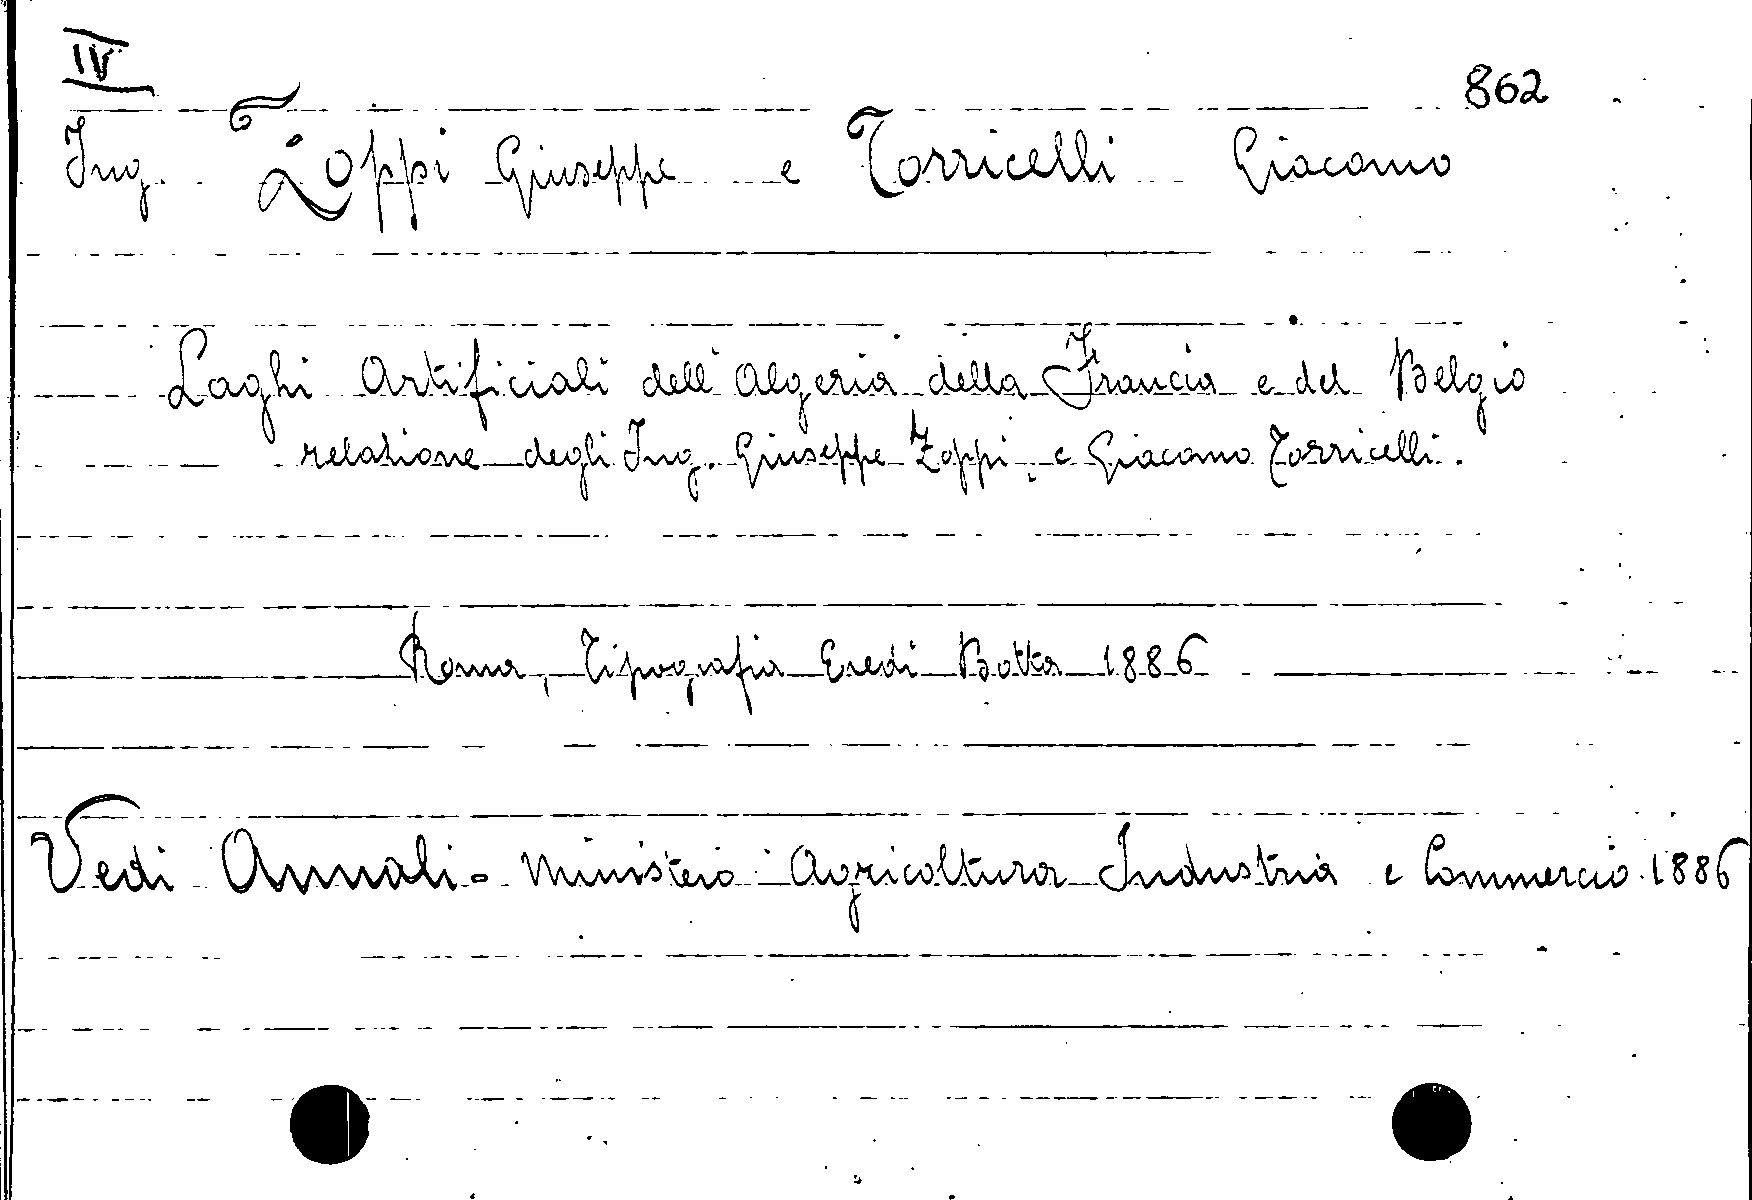 IV
862
Ing. Zoppi Giuseppe e Torricelli Giacomo
Laghi Artificiali dell'Algeria della Francia e del Belgio
relazione degli Ing. Giuseppe Zoppi, e Giacomo Torricelli.
Roma, Tipografia Eredi Botta 1886
Vedi Annali - Ministero Agricoltura Industria e Commercio 1886